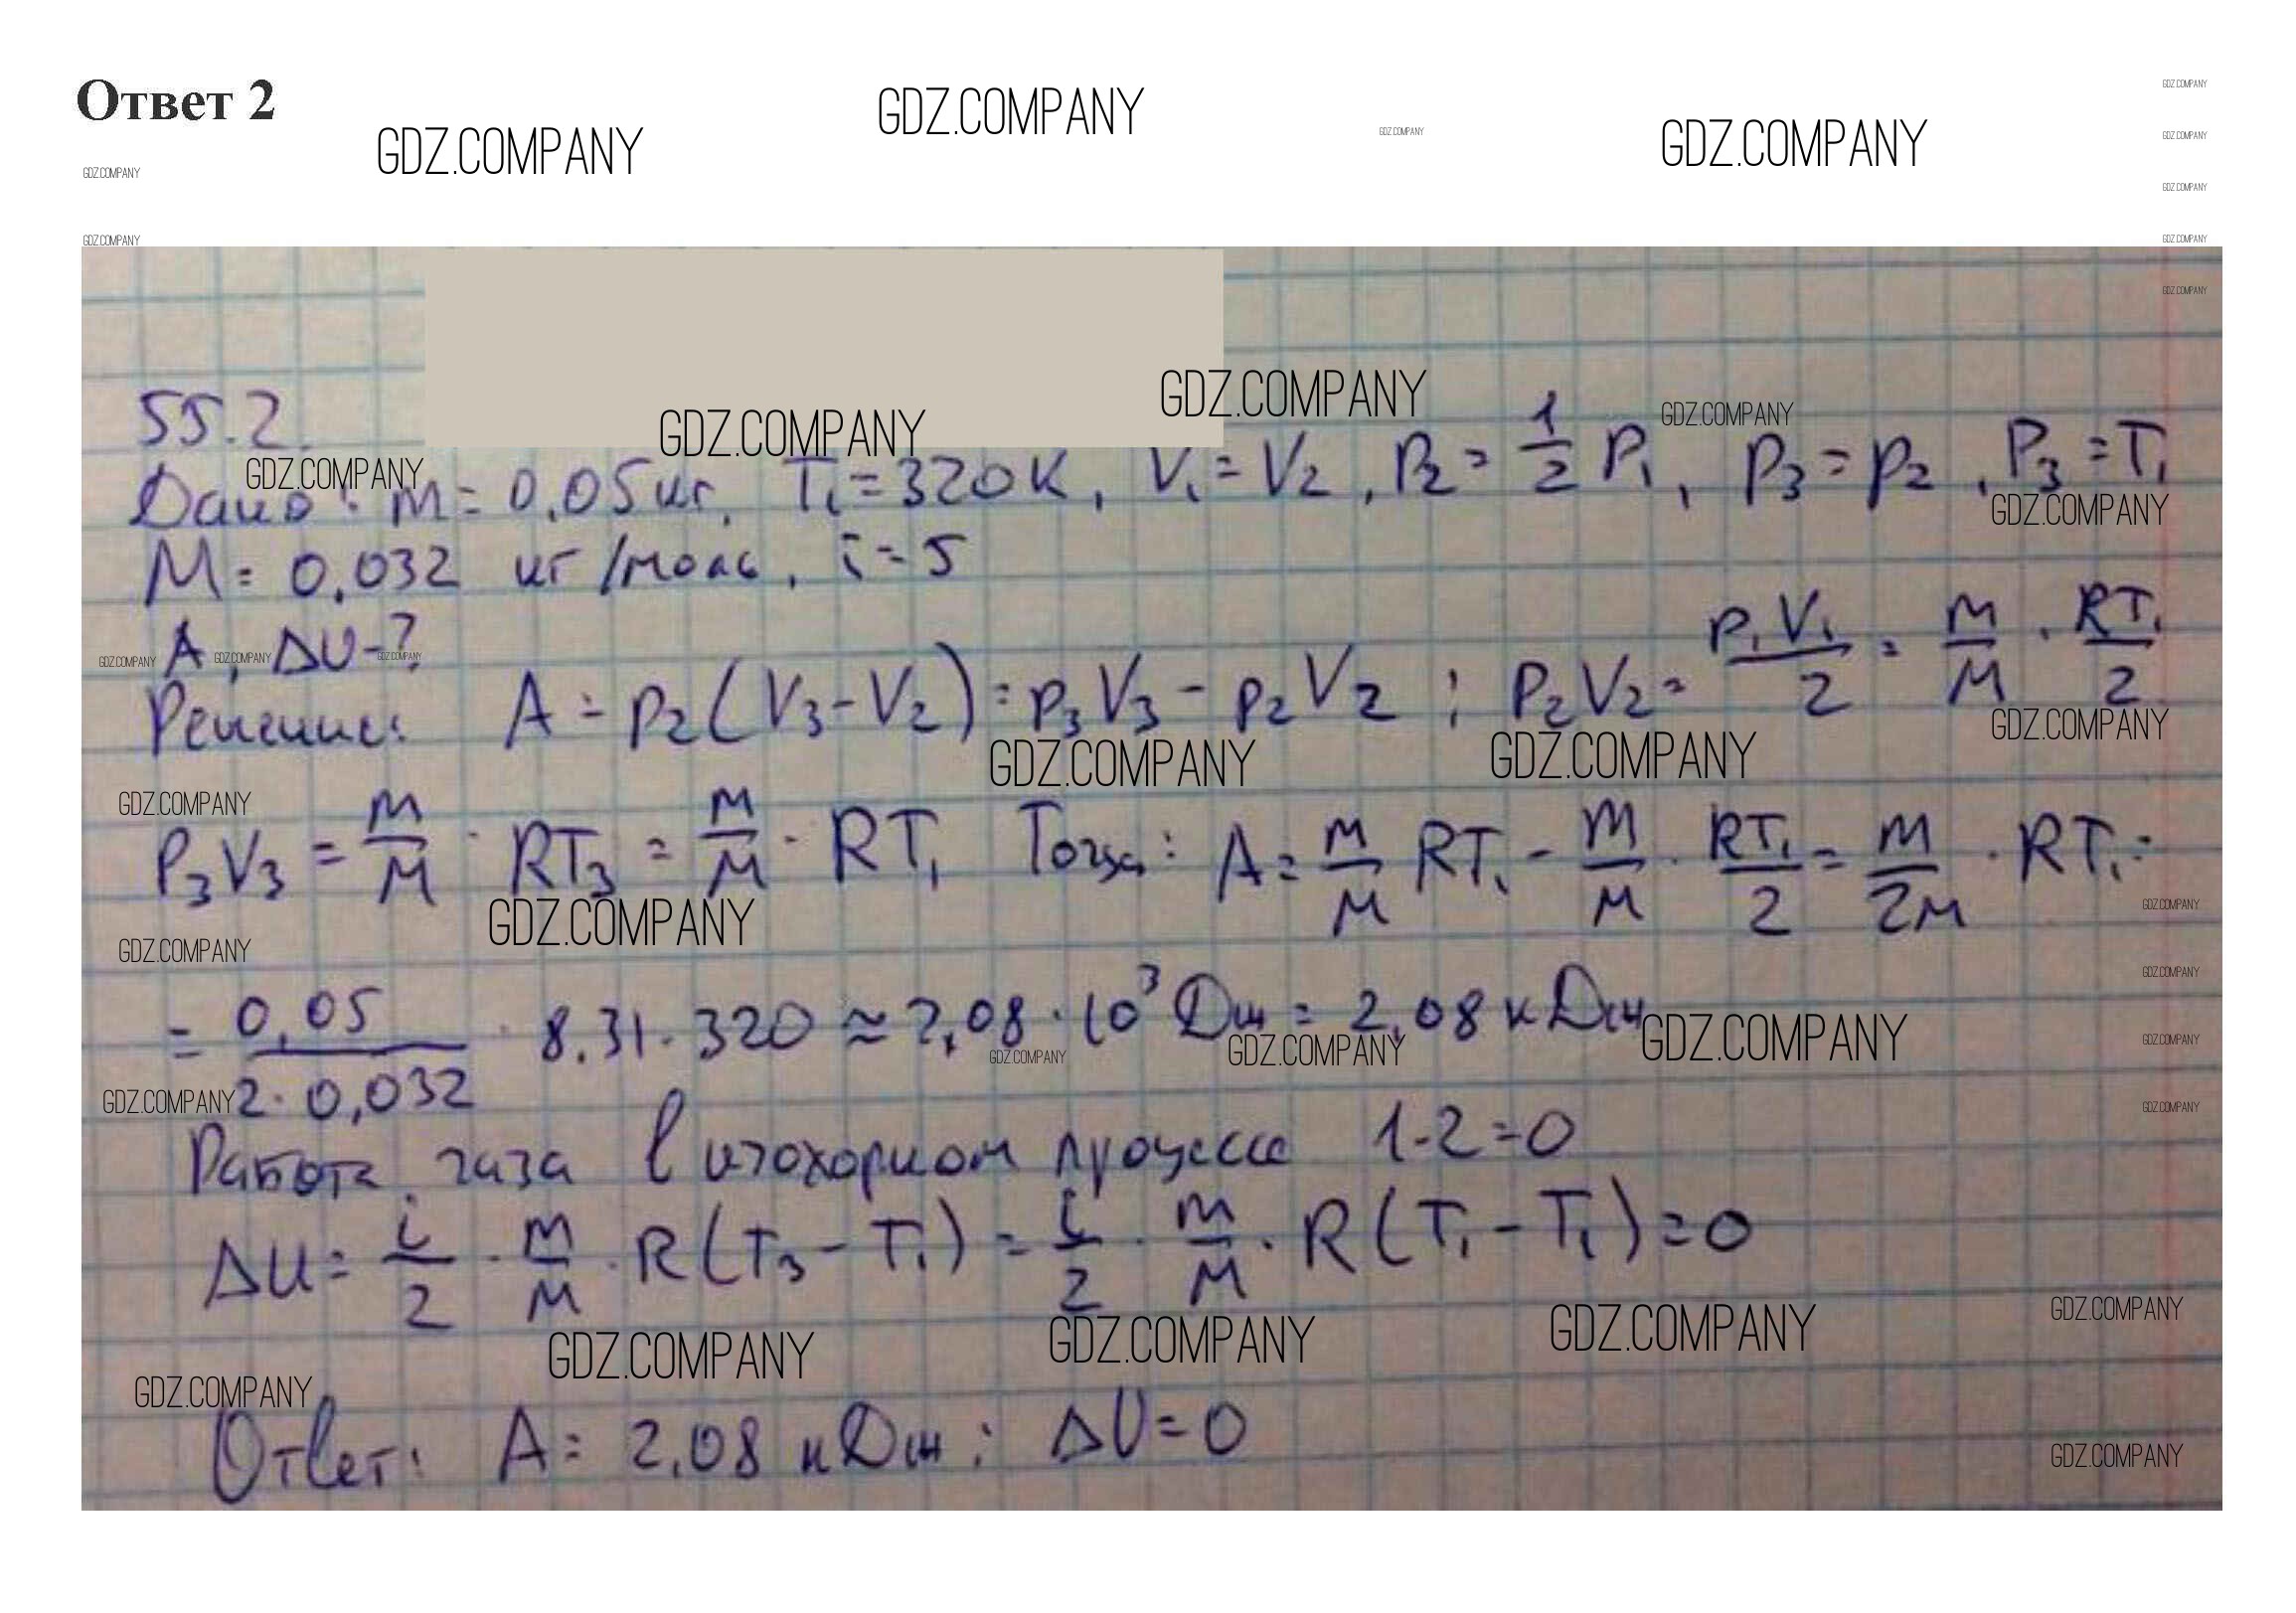 Ответ 2
GDZ.COMPANY
GDZ.COMPANY
GDZ.COMPANY
GDZ.COMPANY
55.2.
Дано: m = 0,05 кг, T₁ = 320 K, V₁ = V₂, P₂ = 1/2 P₁, P₃ = P₂, P₃ = T₁
M = 0,032 кг/моль, i = 5
A, ΔU - ?
Решение: A = p₂(V₃ - V₂) = p₃V₃ - p₂V₂; P₂V₂ = p₁V₁/2 = m/M · RT₁/2
P₃V₃ = m/M · RT₃ = m/M · RT₁ Тогда: A = m/M RT₁ - m/M · RT₁/2 = m/2M · RT₁ =
= 0,05/2·0,032 · 8.31·320 ≈ 2,08·10³ Дж = 2,08 кДж
Работа газа в изохорном процессе 1-2=0
ΔU = i/2 · m/M · R(T₃ - T₁) = i/2 · m/M · R(T₁ - T₁) = 0
Ответ: A = 2,08 кДж; ΔU = 0